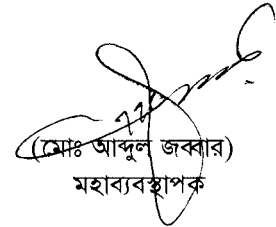 (মোঃ আব্দুল জব্বার)
মহাব্যবস্থাপক